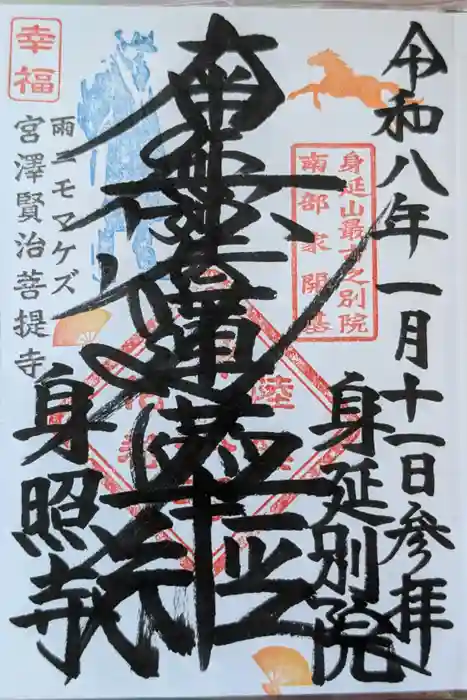 令和八年一月十一日参拝
身延別院
身延山最古之別院
南部家開基
南無妙法蓮華経
幸福
雨ニモマケズ
宮澤賢治菩提寺
身照寺